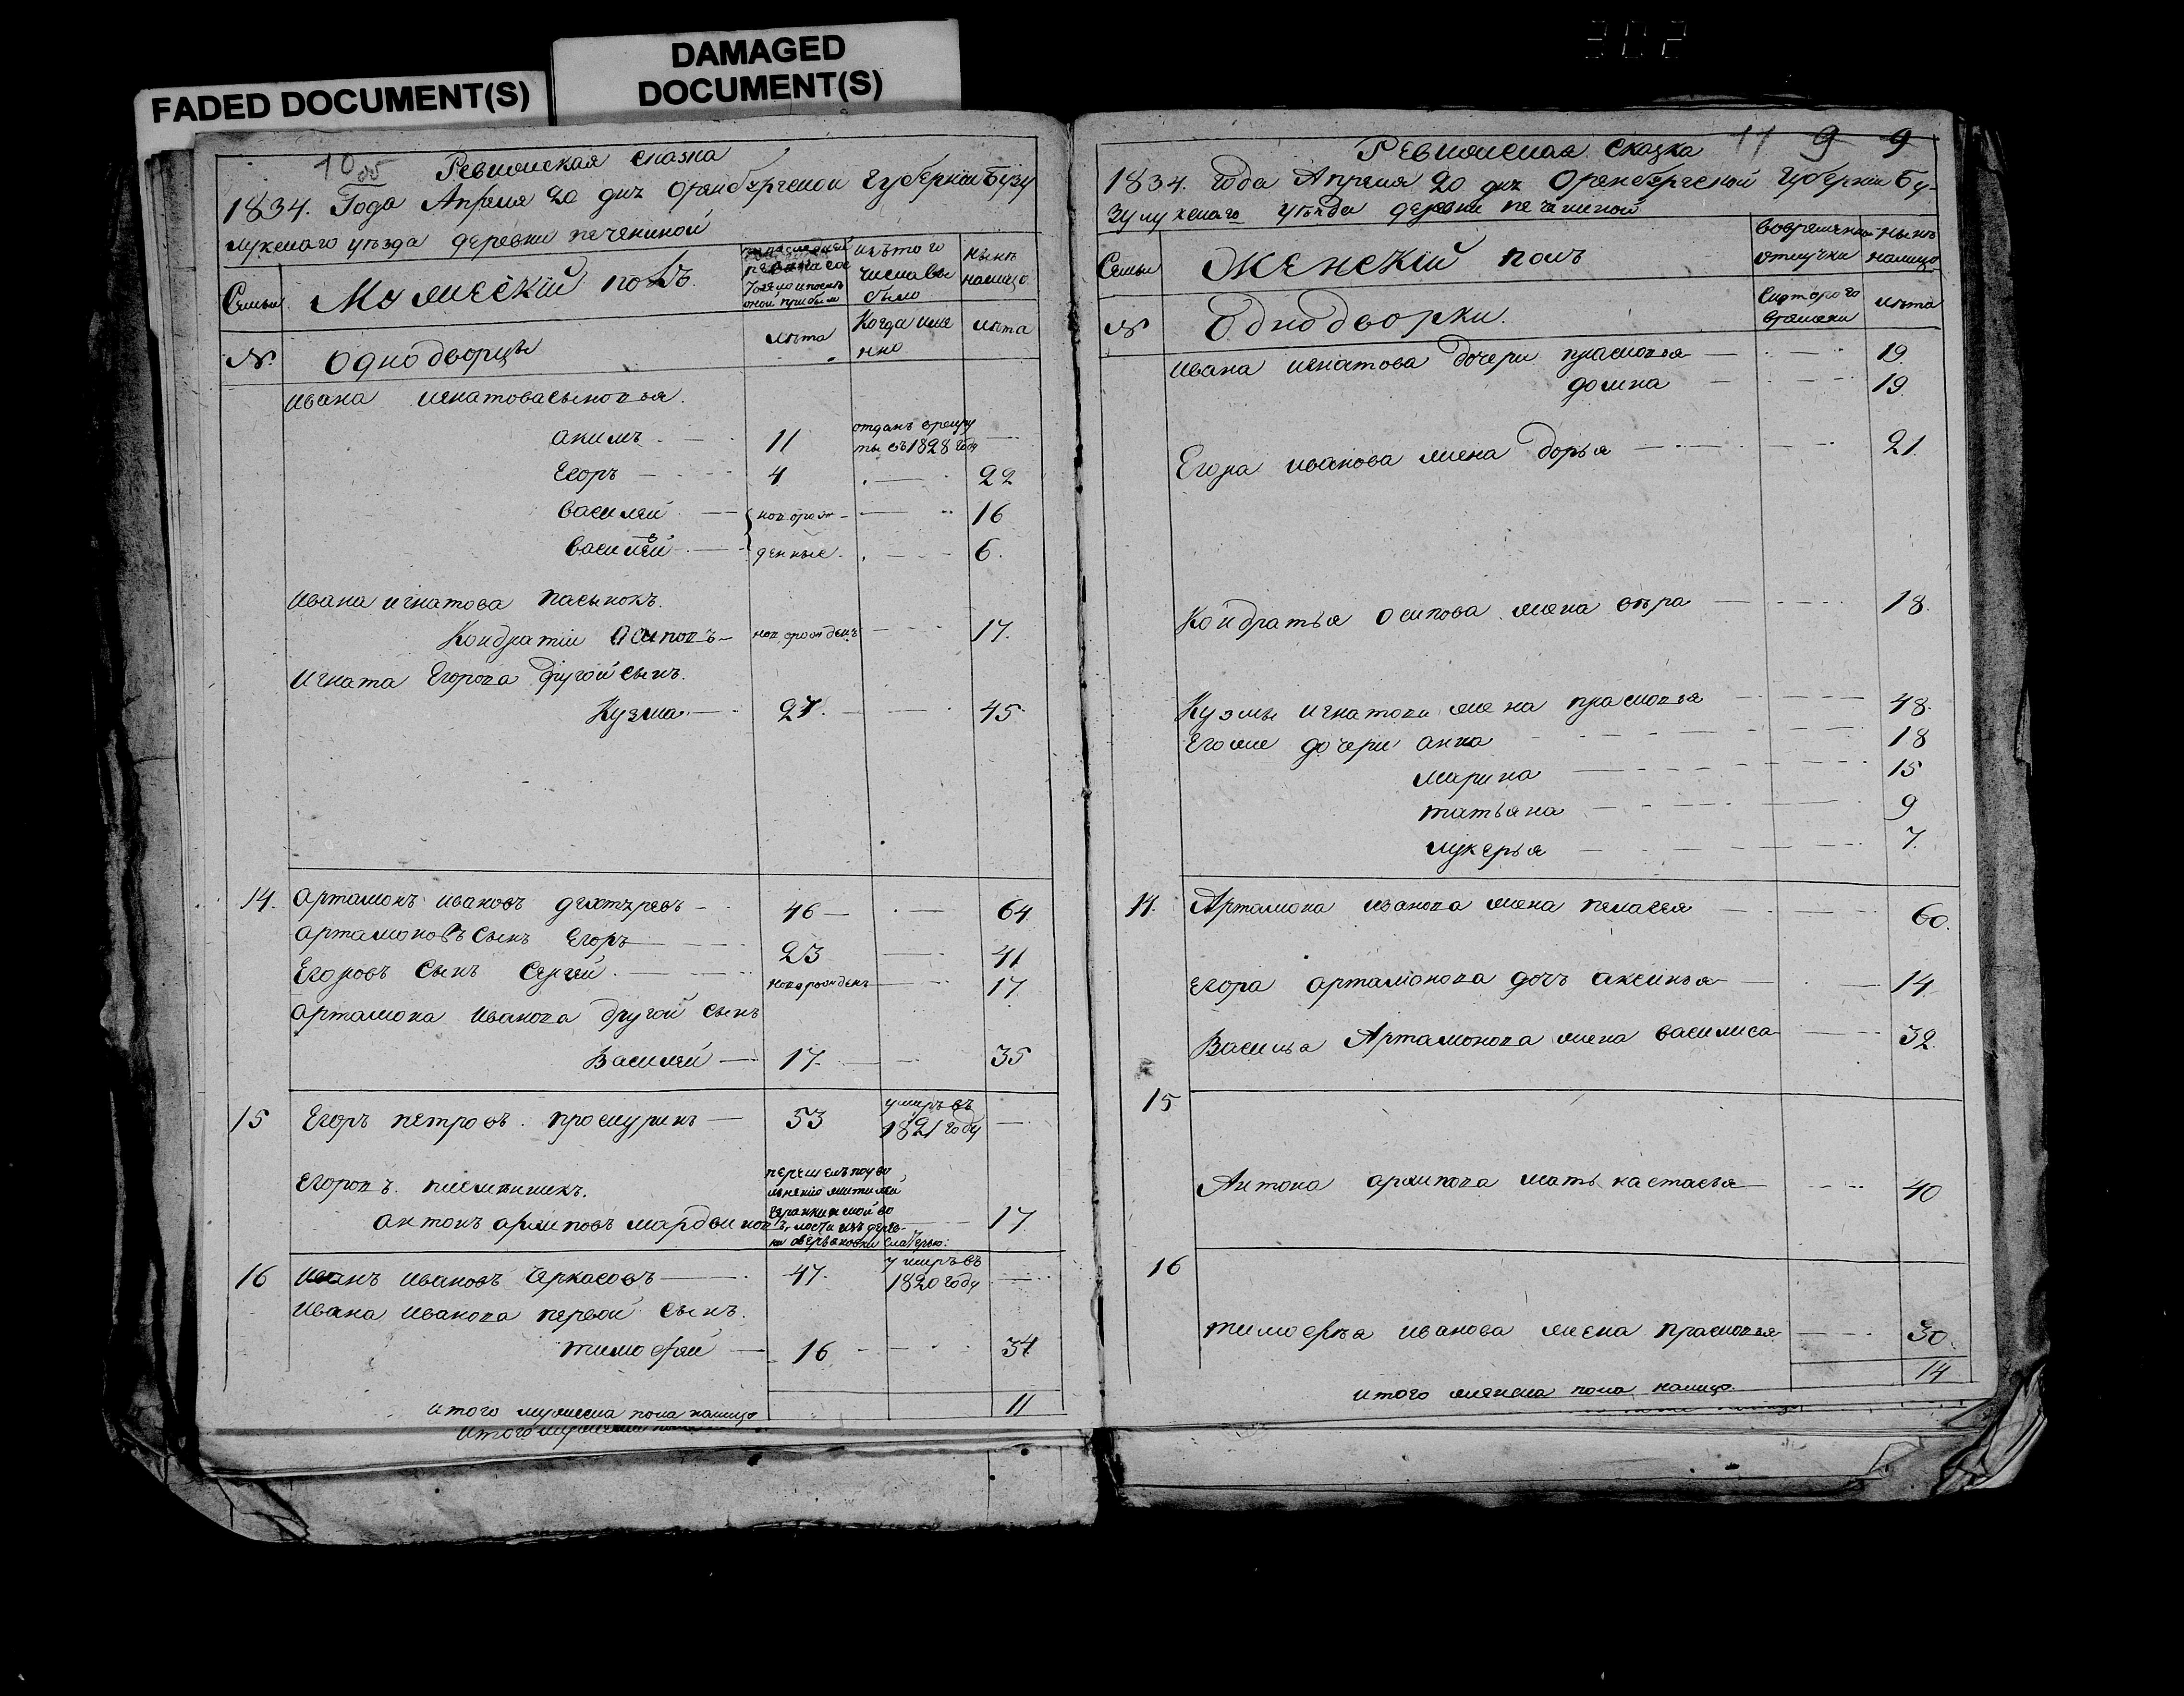 FADED DOCUMENT(S)
DAMAGED
DOCUMENT(S)
302
10 об
Ревижская сказка
1834. Года Апреля 20 дня Оренбургской Губернии Бузу
лукскаго уѣзда деревни печениной
Семьи
Мужескiй полъ.
ревизiи сос
тояло и послѣ
оной прибыло
изъ того
числа вы
было
нынѣ
налицо
№.
Однодворцы
лѣта
Когда име
нно
лѣта
Ивана игнатова сыновья.
акимъ 11 отданъ врекру
ты съ 1828 году
Егоръ 4 22
василей новорож- 16
василей денные. 6.
Ивана игнатова пасынокъ.
Кондратiй Осиповъ новорожденъ 17.
Игната Егорова другой сынъ.
Кузма 27. 45.
14. артамонъ ивановъ дехтяревъ 46 64
артамоновъ сынъ Егоръ 23 41
Егоровъ сынъ Сергей новорожденъ 17
артамона иванова другой сынъ
Василей 17. 35
15 Егоръ петровъ проскуринъ 53 умръ въ
1821 году
Егоровъ племянникъ.
антонъ архиповъ мардвиновъ 17.
16 Иванъ ивановъ Черкасовъ 47. умръ въ
1820 году
Ивана Иванова первой сынъ.
тимофей 16 34
итого мужеска пола налицо 11
11 9 9
Ревижская сказка
1834. года Апреля 20 дня Оренбургской Губернии Бу-
зулукскаго уѣзда деревни печениной
Семьи
Женскiй полъ
вовременной
отлучки
нынѣ
налицо
№
Однодворки.
Скоторого
времени
лѣта
Ивана игнатова дочери прасковья 19.
домна 19.
Егора иванова жена дарья 21.
Кондратья осипова жена вѣра 18.
Кузмы игнатова жена прасковья 48.
Егоже дочери анна 18
марина 15
татьяна 9
лукерья 7.
14. Артамона иванова жена пелагея 60.
Егора артамонова дочь аксинья 14.
Василья Артамонова жена василиса 32.
15
Антона архипова мать настасья 40
16
тимофея иванова жена прасковья 30.
итого женска пола налицо. 14